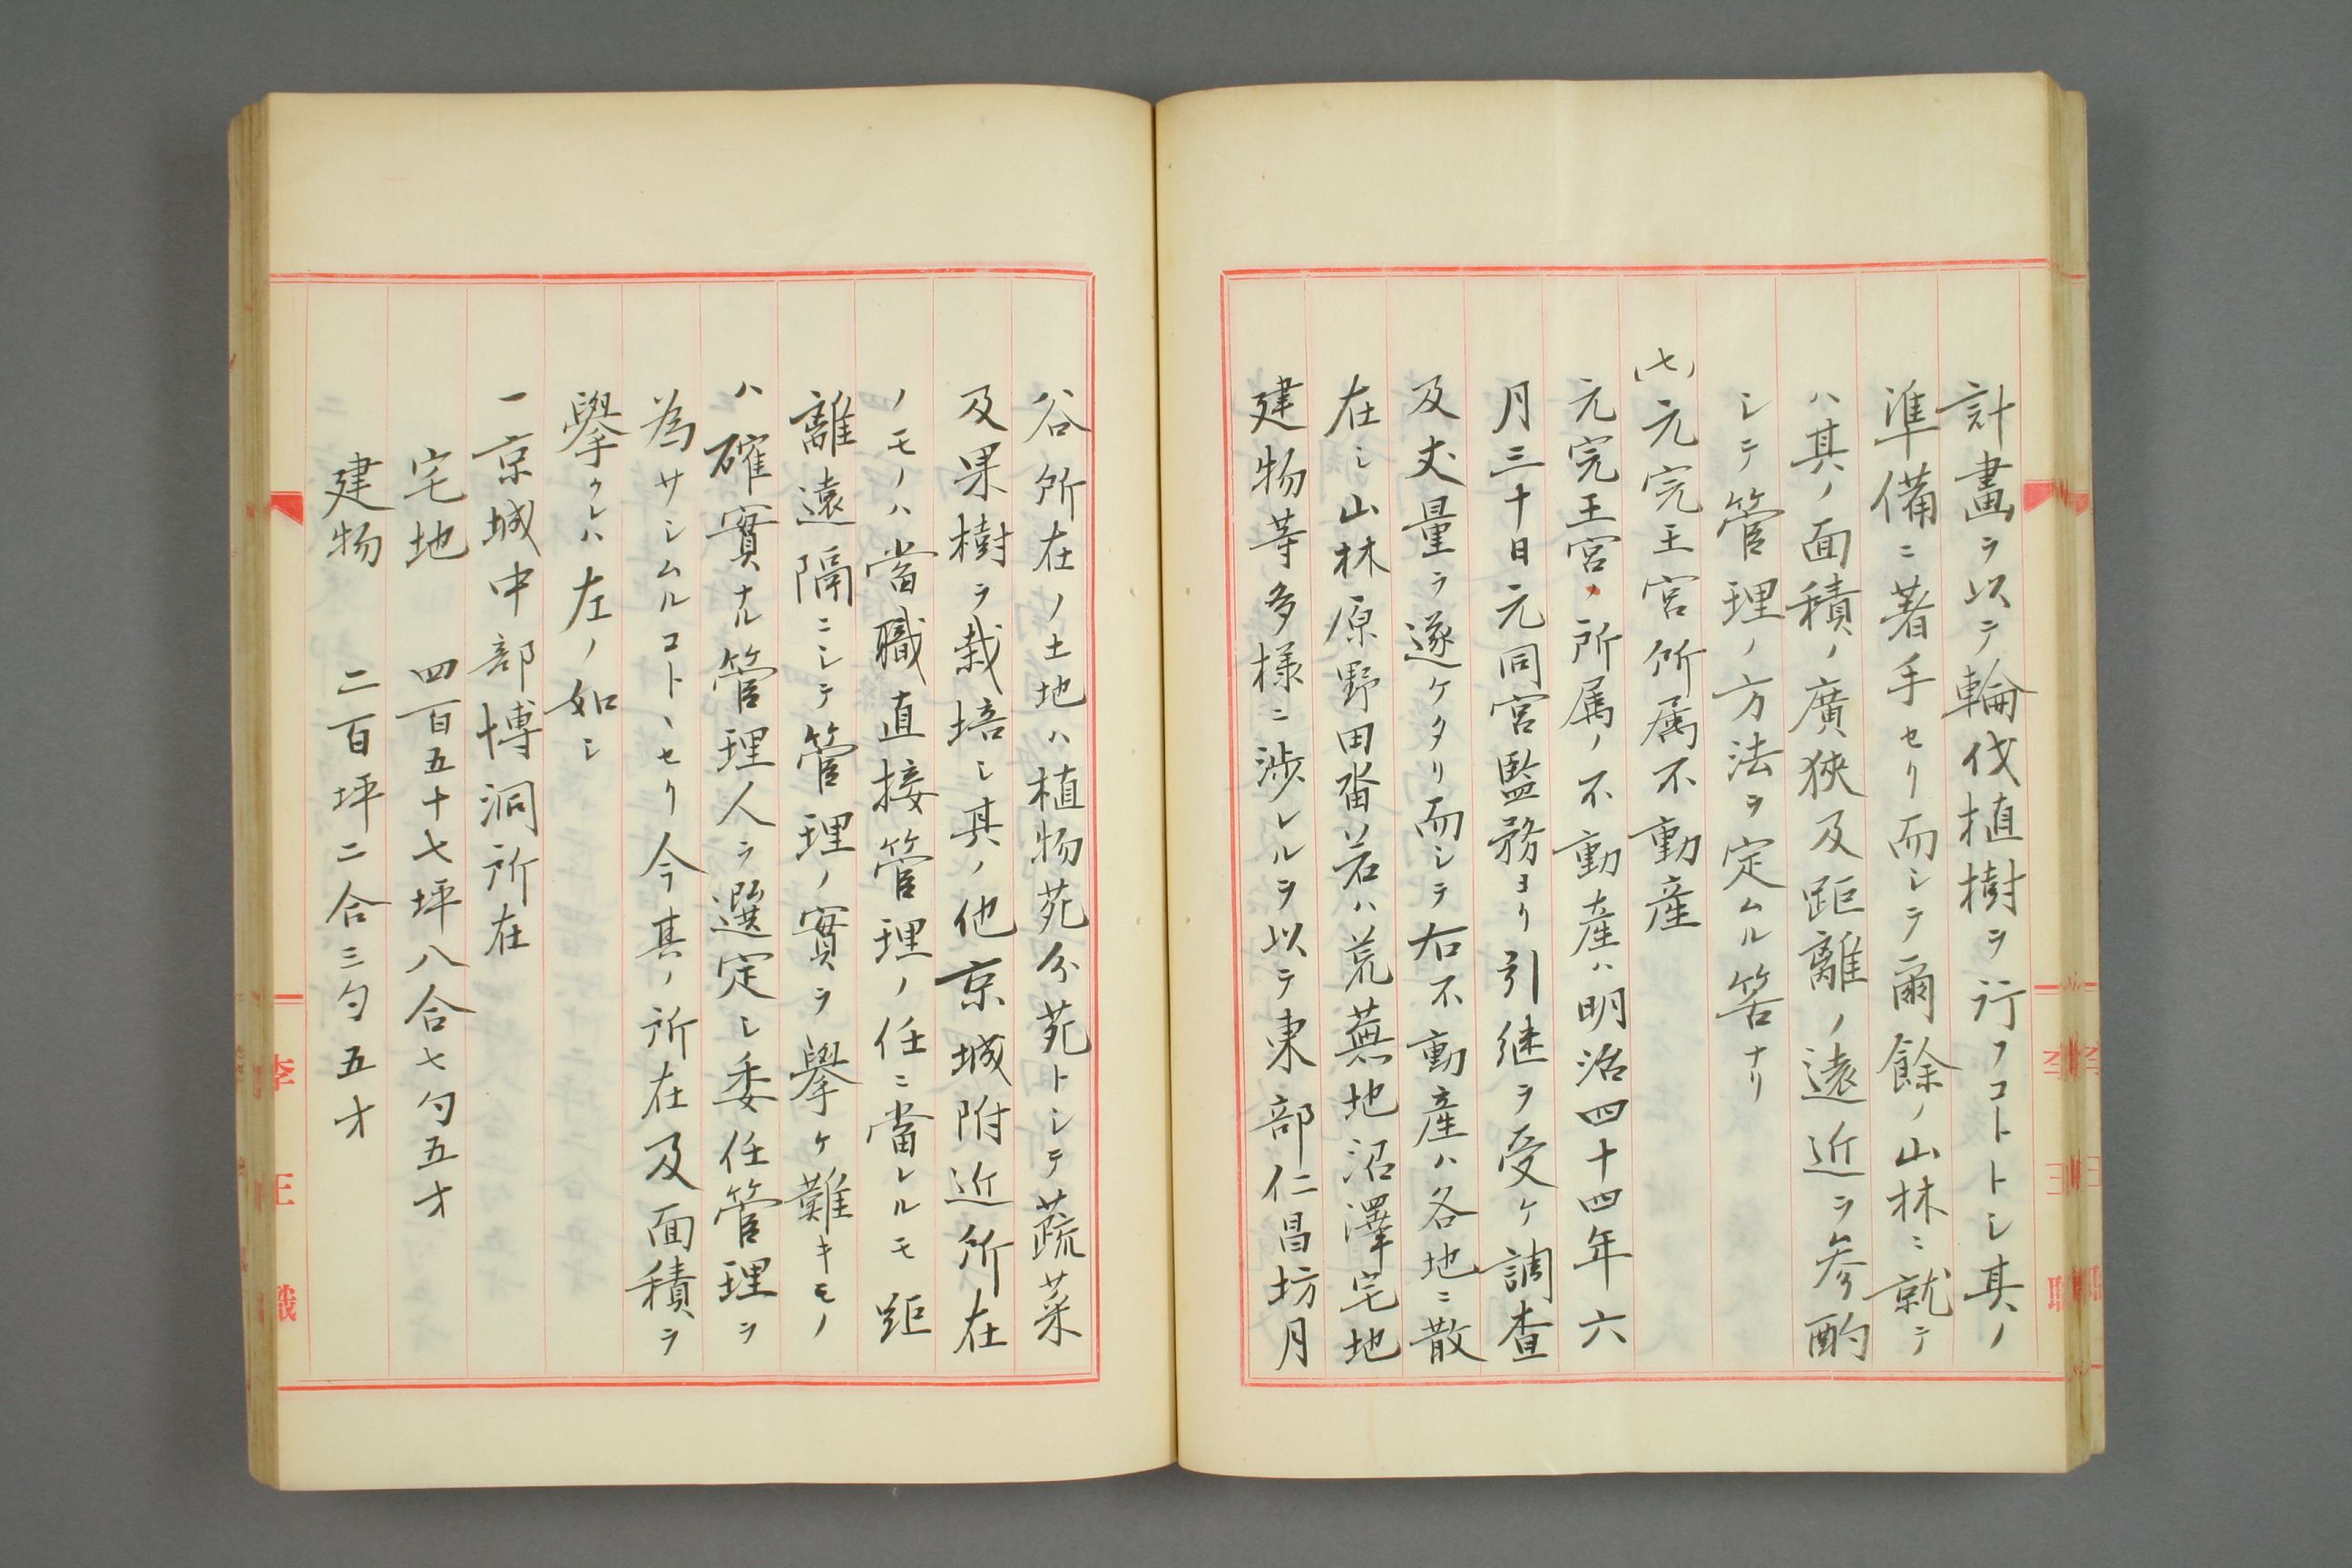 計畫ヲ以テ輪伐植樹ヲ行フコトトシ其ノ
準備ニ著手セリ而シテ爾餘ノ山林ニ就テ
ハ其ノ面積ノ廣狹及距離ノ遠近ヲ参酌
シテ管理ノ方法ヲ定ムル筈ナリ
(七)元完王宮所属不動産
元完王宮ノ所属ノ不動産ハ明治四十四年六
月三十日元同宮監務ヨリ引継ヲ受ケ調査
及丈量ヲ遂ケタリ而シテ右不動産ハ各地ニ散
在シ山林原野田畓若ハ荒蕪地沼澤宅地
建物等多様ニ渉レルヲ以テ東部仁昌坊月
谷所在ノ土地ハ植物苑分苑トシテ蔬菜
及果樹ヲ栽培シ其ノ他京城附近所在
ノモノハ當職直接管理ノ任ニ當レルモ距
離遠隔ニシテ管理ノ實ヲ擧ケ難キモノ
ハ確實ナル管理人ヲ選定シ委任管理ヲ
為サシムルコトヽセリ今其ノ所在及面積ヲ
擧クレハ左ノ如シ
一京城中部博洞所在
宅地 四百五十七坪八合七勺五才
建物 二百坪二合三勺五才
李王職